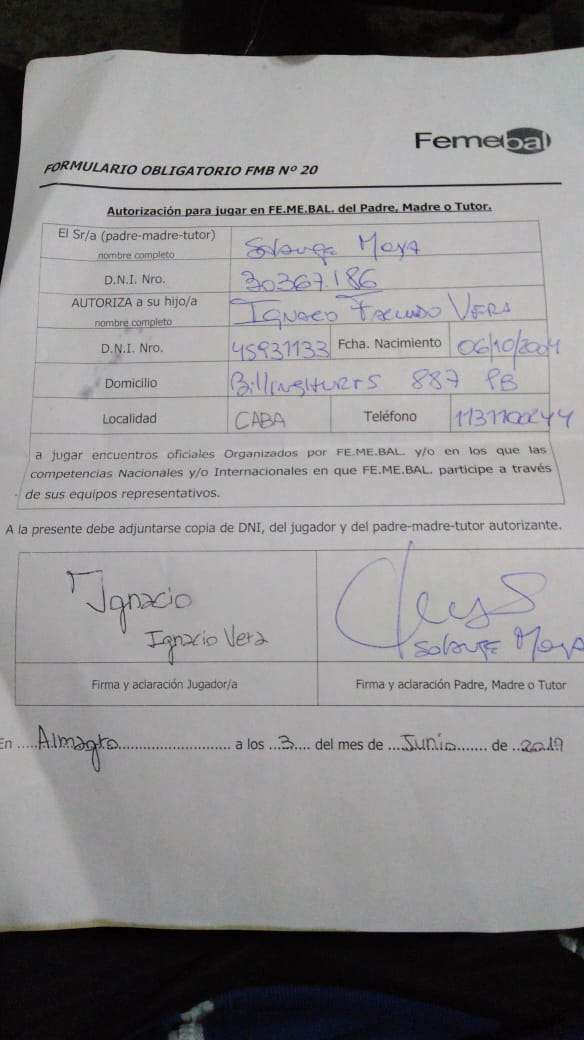 Femebal
FORMULARIO OBLIGATORIO FMB Nº 20
Autorización para jugar en FE.ME.BAL. del Padre, Madre o Tutor.
El Sr/a (padre-madre-tutor) Solange Moya
nombre completo
D.N.I. Nro. 30367.186
AUTORIZA a su hijo/a Ignacio Facundo Vera
nombre completo
D.N.I. Nro. 45931133 Fcha. Nacimiento 06/10/2004
Domicilio Billinghurts 887 PB
Localidad CABA Teléfono 1131700244
a jugar encuentros oficiales Organizados por FE.ME.BAL. y/o en los que las
competencias Nacionales y/o Internacionales en que FE.ME.BAL. participe a través
de sus equipos representativos.
A la presente debe adjuntarse copia de DNI, del jugador y del padre-madre-tutor autorizante.
Ignacio
Ignacio Vera
Solange Moya
Firma y aclaración Jugador/a Firma y aclaración Padre, Madre o Tutor
En .....Almagro............................ a los ...3.... del mes de ...Junio....... de ..2019